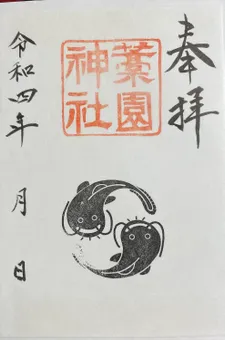 奉拝
葉園
神社
令和四年 月 日